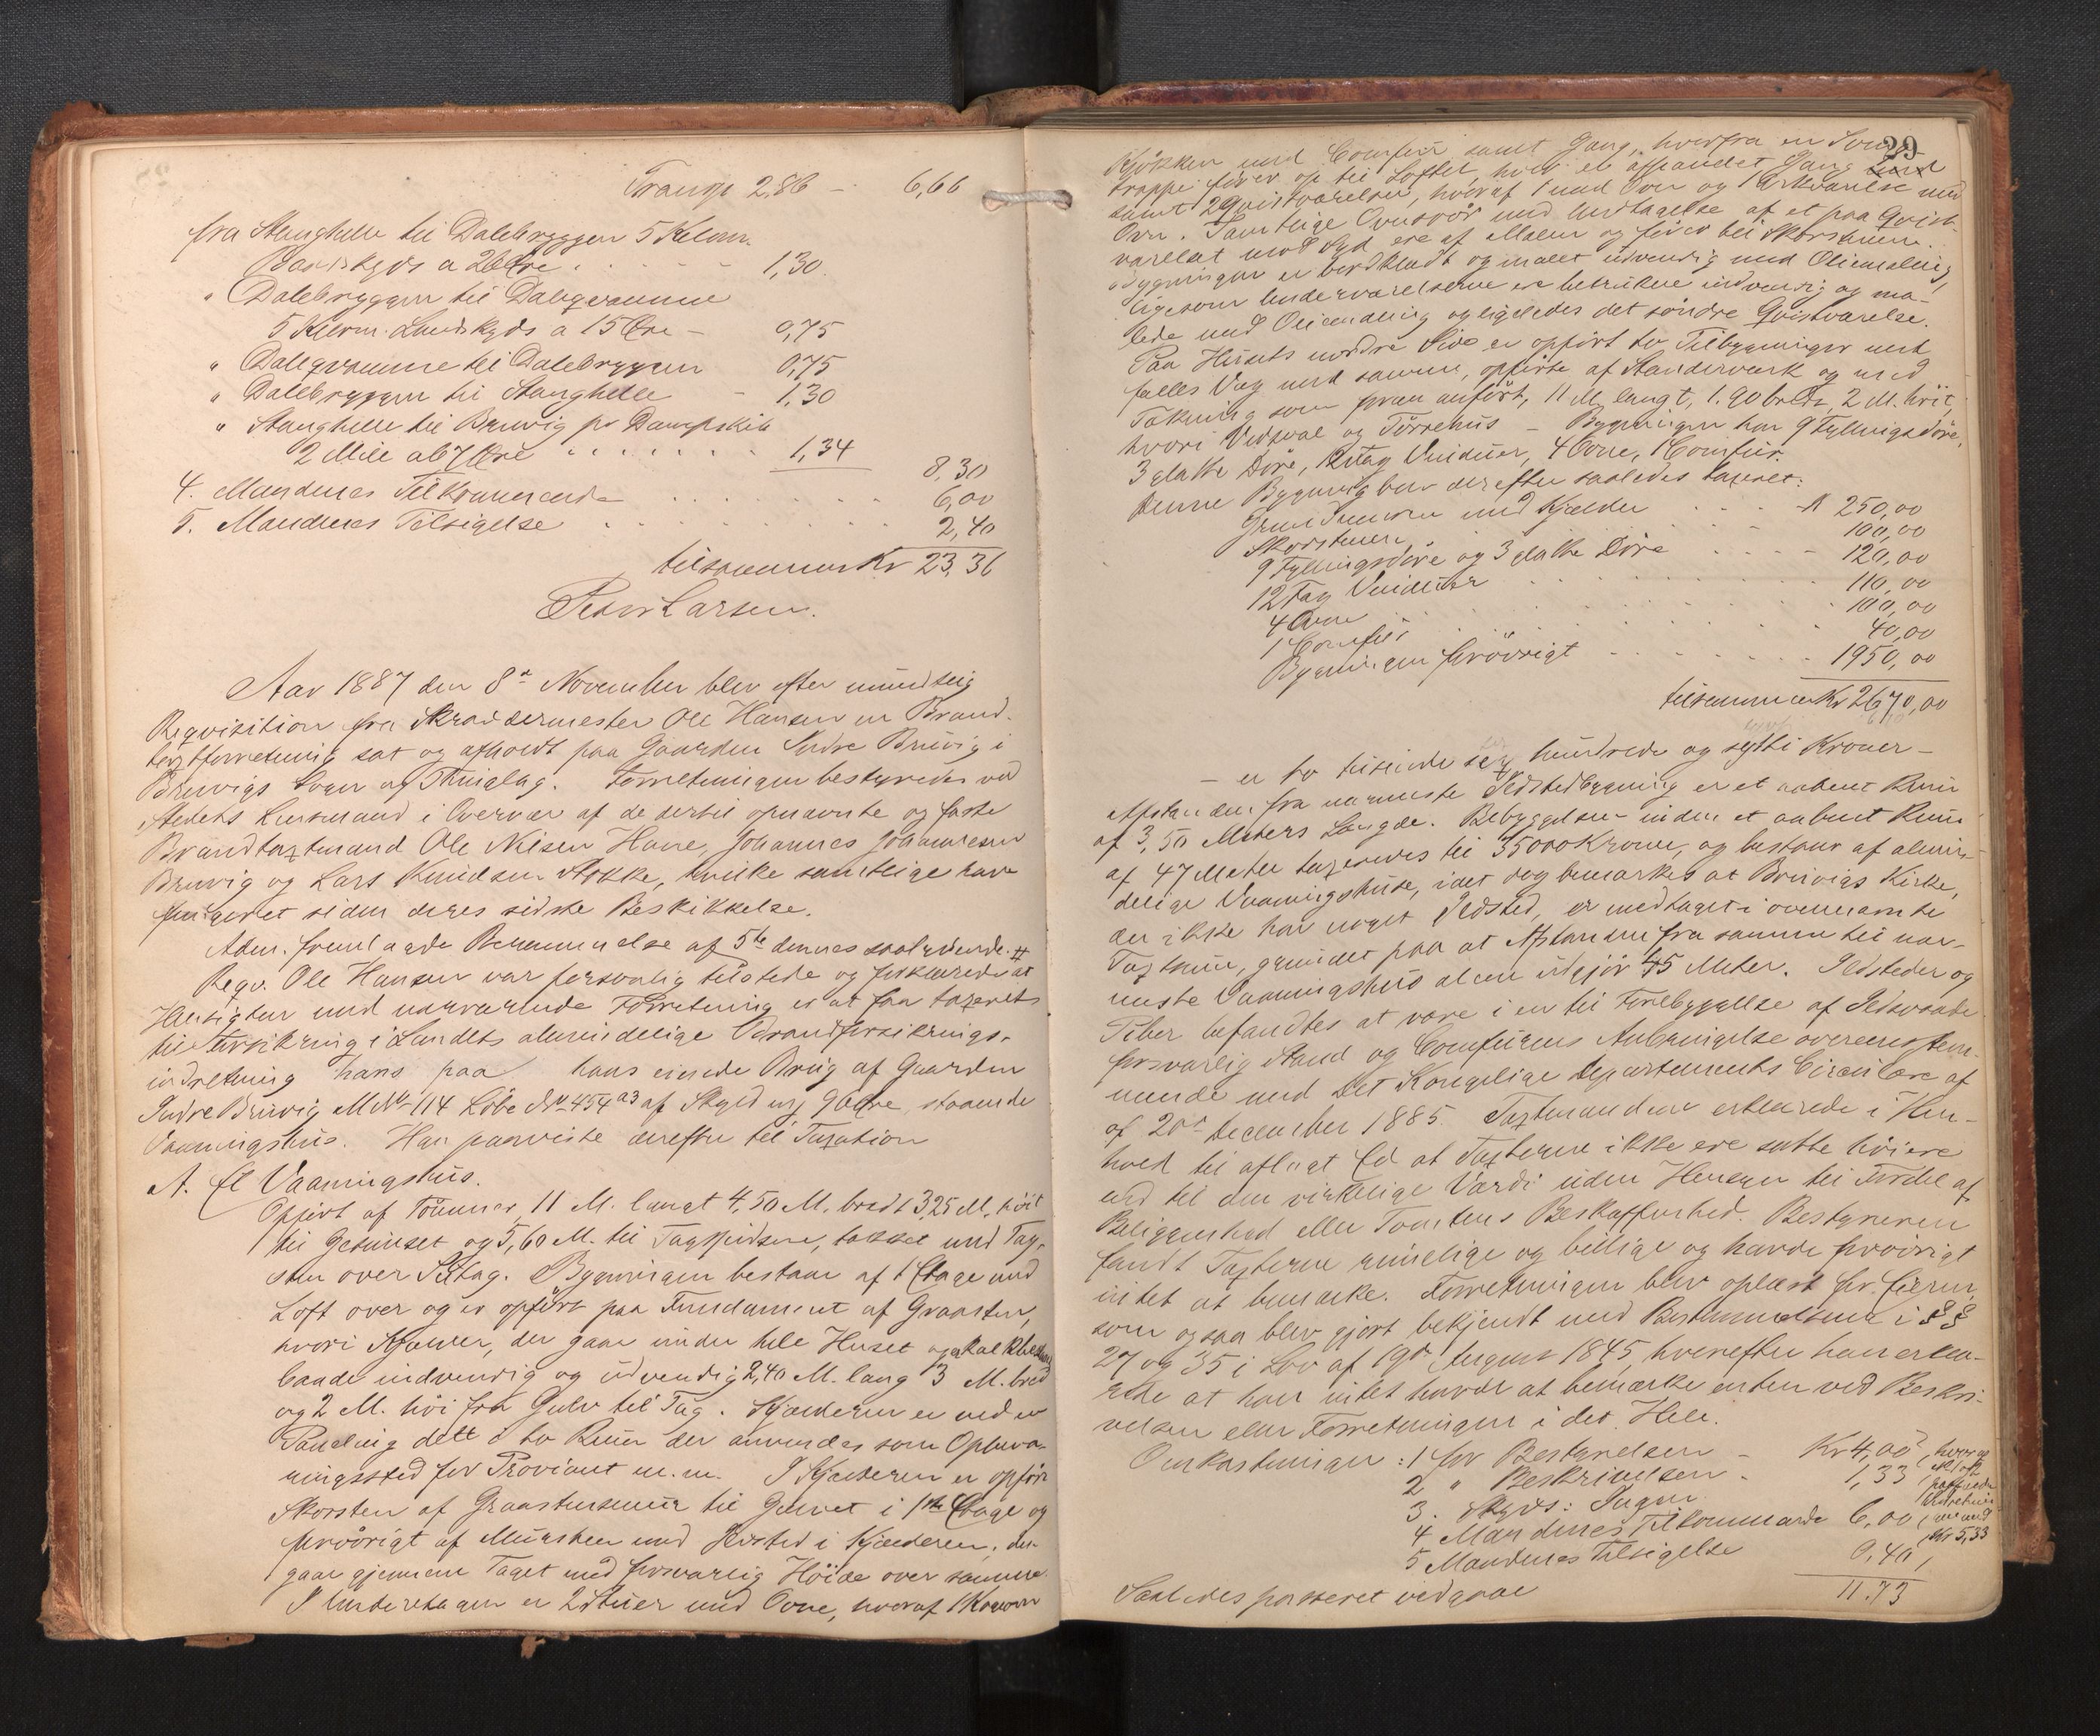 Transp. 2,86 – 6,66
fra Stanghelle til Dalebryggen 5 Kilom.
Baadskyds a 26 Øre . . . . – 1,30
" Dalebryggen til Daleqvamme
5 Kilom. Landskyds a 15 Øre – 0,75
" Daleqvamme til Dalebryggen 0,75
" Dalebryggen til Stanghelle – 1,30
" Stanghelle til Bruvig pr Dampskib
2 Mile a 67 Øre . . . . . . 1,34 8,30
4. Mandenes Tilkommende . . . . . . . 6,00
5. Mandenes Tilsigelse . . . . . . . . . 2,40
tilsammen Kr 23,36
Peder Larsen.
Aar 1887 den 8de November blev efter mundtlig
Reqvisition fra Skræddermester Ole Hansen en Brand-
taxtforretning sat og afholdt paa Gaarden Indre Bruvig i
Bruvigs Sogn og Thinglag. Forretningen bestyredes ved
Stedets Lensmand i Overvær af de dertil opnævnte og faste
Brandtaxtmænd Ole Nilsen Hane, Johannes Johannesen
Bruvig og Lars Knudsen Stokke, hvilke samtlige have
fungeret siden deres sidste Beskikkelse.
Adm. fremlagde Benævnelse af 5te dennes saalydende #
Reqv. Ole Hansen var personlig tilstede og forklarede at
Hensigten med nærværende Forretning er at faa taxerets
til Forsikring i Landets almindelige Brandforsikrings-
indretning hans paa hans eiende Brug af Gaarden
Indre Bruvig M No 114 Løbe No 454 a3 af Skyld mk 90 Øre, staaende
Vaaningshus. Han paaviste derefter til Taxation
A. Et Vaaningshus.
Opført af Tømmer, 11 M. langt 4,50 M. bredt 3,25 M. høit
til Gesimset og 5,60 M. til Tagspidsen, takket med Tag-
sten over Sutag. Bygningen bestaar af 1 Etage med
Loft over og er opført paa Fundament af Graasten,
hvori Kjælder, der gaar under hele Huset og kalkslaget
baade indvendig og udvendig 2,40 M. lang 3 M. bred
og 2 M. høi fra Gulv til Tag. Kjælderen er ved en
Paneling delt i to Rum der anvendes som Opbeva-
ringssted for Proviant m.m. I Kjælderen er opført
Skorsten af Graastensmur til Gulvet i 1ste Etage og
forøvrigt af Mursten med Ildsted i Kjælderen, der
gaar gjennem Taget med forsvarlig Høide over samme.
I Underetagen er 2 Stuer med Ovne, hvoraf 1 Kammer
29
Kjøkken med Comfur samt Gang, hvorfra en Sving-
trappe fører op til Loftet, hvor et afpanelet Gang
samt 2 Qvistværelser, hvoraf 1 med Ovn og 1 Arkværelse med
Ovn. Samtlige Ovnsrør med Undtagelse af et paa Qvist-
værelset mod Syd ere af Malm og fører til Skorstenen.
Bygningen er bordklædt og malet udvendig med Oliemaling
ligesom Underværelserne ere betrukne indvendig og ma-
lede med Oliemaling og ligeledes det søndre Qvistværelse.
Paa Husets nordre Side er opført to Tilbygninger med
fælles Væg med samme, opførte af Stenderværk og med
Tækning som foran anført, 11 M. langt, 1.90 bredt, 2 M. høit,
hvori Vedsval og Tørrehus – Bygningen har 9 Fyllingsdøre,
3 glatte Døre, 12 Fag Vinduer, 4 Ovne, 1 Comfur.
Denne Bygning blev derefter saaledes taxeret:
Grundmuren med Kjælder . . . Kr 250,00
Skorstenen . . . . 100,00
9 Fyllingsdøre og 3 glatte Døre . . . – 120,00
12 Fag Vinduer . . . . . 110,00
4 Ovne . . . . . . . 100,00
1 Comfur . . . . . . . 40,00
Bygningen forøvrigt . . . . . . 1950,00
tilsammen Kr 2670,00
– er to tusinde sex hundrede og sytti Kroner –
Afstanden fra nærmeste Ildstedbygning er et aabent Rum
af 3,50 Meters Længde. Bebyggelsen inden et aabent Rum
af 47 Meter taxeredes til 35000 Kroner, og bestaar af almin-
delige Vaaningshuse, idet dog bemærkes at Bruvigs Kirke,
der ikke har noget Ildsted, er medtaget i ovennævnte
Taxtsum, grundet paa at Afstanden fra samme til nær-
meste Vaaningshus alene udgjør 45 Meter. Ildsteder og
Piber befandtes at være i en til Forebyggelse af Ildsvaade
forsvarlig Stand og Comfurens Anbringelse overensstem-
mende med Det Kongelige Departements Circulære af
af 20de December 1885. Taxtmændene erklærede i Hen-
hold til aflagt Ed at Taxterne ikke ere satte høiere
end til den virkelige Værdi uden Hensyn til Fordel af
Beliggenhed eller Tomtens Beskaffenhed. Bestyreren
fandt Taxterne rimelige og billige og havde forøvrigt
intet at bemærke. Forretningen blev oplæst for Eieren,
som ogsaa blev gjort bekjendt med Bestemmelserne i §§
27 og 35 i Lov af 19de August 1845, hvorefter han erklæ-
rede at han intet havde at bemærke enten ved Beskri-
velsen eller Forretningen i det Hele.
Omkostninger: 1 for Bestyrelsen – Kr 4,00
2 " Beskrivelsen – 1,33
3. Skyds: Ingen
4 Mandenes Tilkommende 6,00
5 Mandenes Tilsigelse 0,40
11.73
Saaledes passeret vedgaar
Kr 5,33